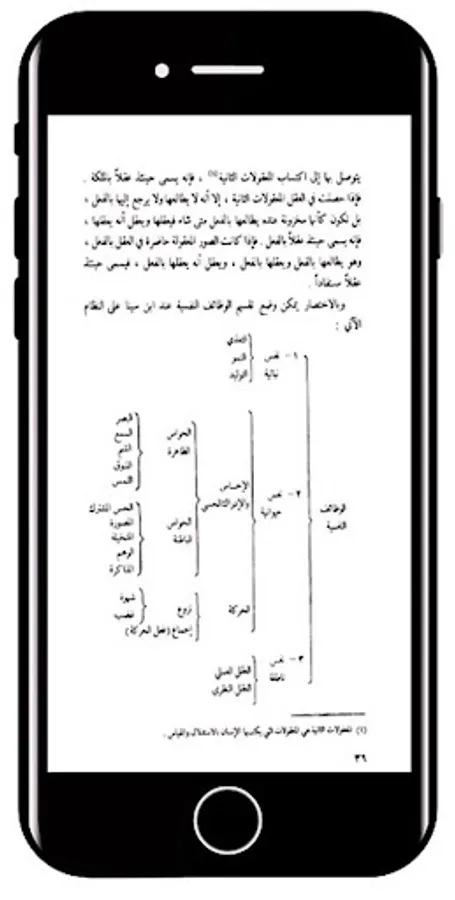 يتوصل بها إلى اكتساب المعقولات الثانية (١) ، فإنه يسمى حينئذ عقلاً بالملكة .
فإذا حصلت في العقل المعقولات الثانية ، إلا أنه لا يطالعها ولا يرجع إليها بالفعل ،
بل تكون كأنها مخزونة عنده يطالعها بالفعل متى شاء فيعقلها ويعقل أنه يعقلها ،
فإنه يسمى حينئذ عقلاً بالفعل . فإذا كانت الصور المعقولة حاضرة في العقل بالفعل ،
وهو يطالعها بالفعل ويعقلها بالفعل ، ويعقل أنه يعقلها بالفعل ، فيسمى حينئذ
عقلاً مستفاداً .
وبالاختصار يمكن وضع تقسيم الوظائف النفسية عند ابن سينا على النظام
الآتي :
الوظائف
النفسية
١ - نفس
نباتية
التغذي
النمو
التوليد
٢ - نفس
حيوانية
الإحساس
والإدراك الحسي
الحواس
الظاهرة
البصر
السمع
الشم
الذوق
اللمس
الحواس
الباطنة
الحس المشترك
المصورة
المتخيلة
الوهم
الذاكرة
الحركة
نزوع
شهوة
غضب
إجماع (فعل الحركة)
٣ - نفس
ناطقة
العقل العملي
العقل النظري
(١) المعقولات الثانية هي المعقولات التي يكتسبها الإنسان بالاستدلال والقياس .
٣٦